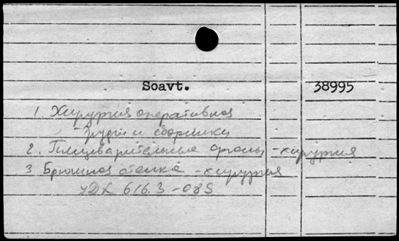 Soavt. 38995
1. Хирургия оперативная
- Труды и сборники
2. Пищеварительные органы - хирургия
3. Брюшная стенка - хирургия
УДК 616.3-089